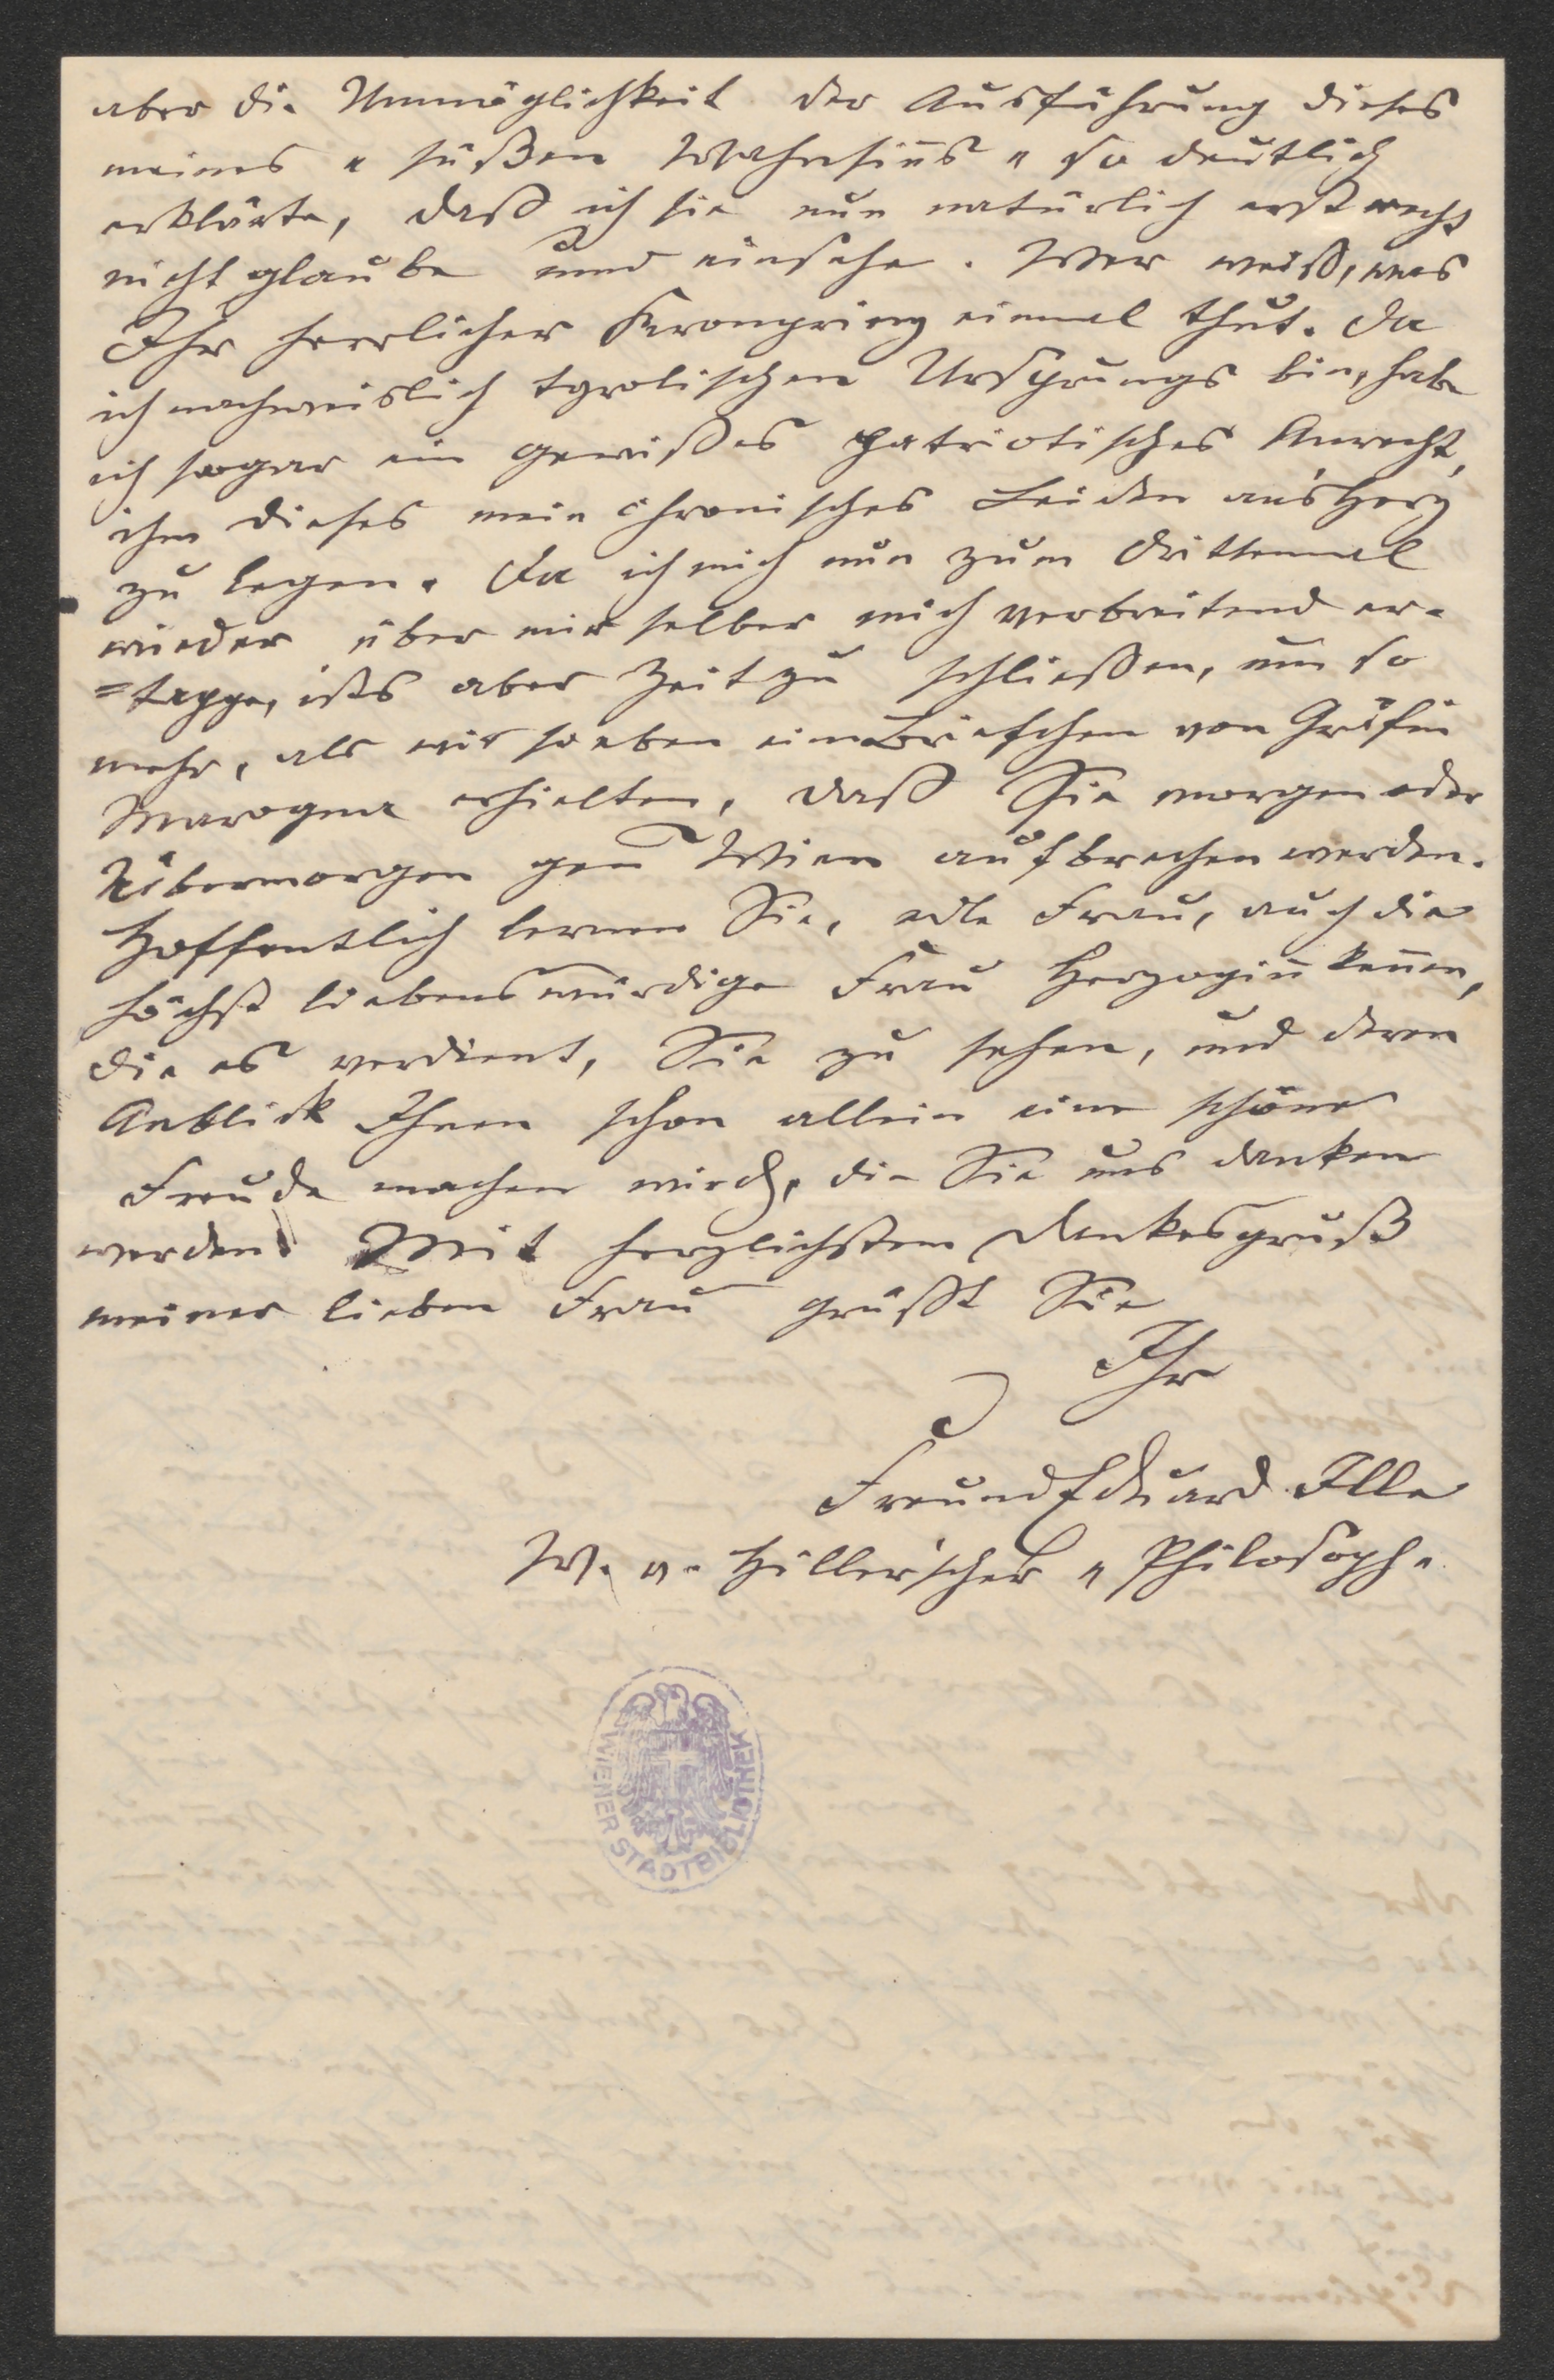 aber die Unmöglichkeit der Ausführung dieses
meines „süßen Wahnsinns" so deutlich
erklärte, daß ich sie nun natürlich erst recht
nicht glaube und einsehe. Wer weiß, was
Ihr herrlicher Kronprinz einmal thut. Da
ich nachweislich tyrolischen Ursprungs bin, habe
ich sogar ein gewißes patriotisches Anrecht,
ihm dieses mein chronisches Leiden an's Herz
zu legen. Da ich mich nun zum drittenmal
wieder über mir selber mich verbreitend er-
=tappe, ists aber Zeit zu schließen, um so
mehr, als wir soeben ein Briefchen von Gräfin
Marogna erhielten, daß Sie morgen oder
Übermorgen gen Wien aufbrechen werden.
Hoffentlich lernen Sie, edle Frau, auch die
höchst liebenswürdige Frau Herzogin̄ kennen,
die es verdient, Sie zu sehen, und deren
Anblick Ihnen schon allein eine schöne
Freude machen wird, die Sie uns danken
werden. Mit herzlichstem Dankesgruß
meiner lieben Frau grüßt Sie
Ihr
Freund Eduard Ille
W. v. Hiller'scher „Philosoph"
WIENER STADTBIBLIOTHEK